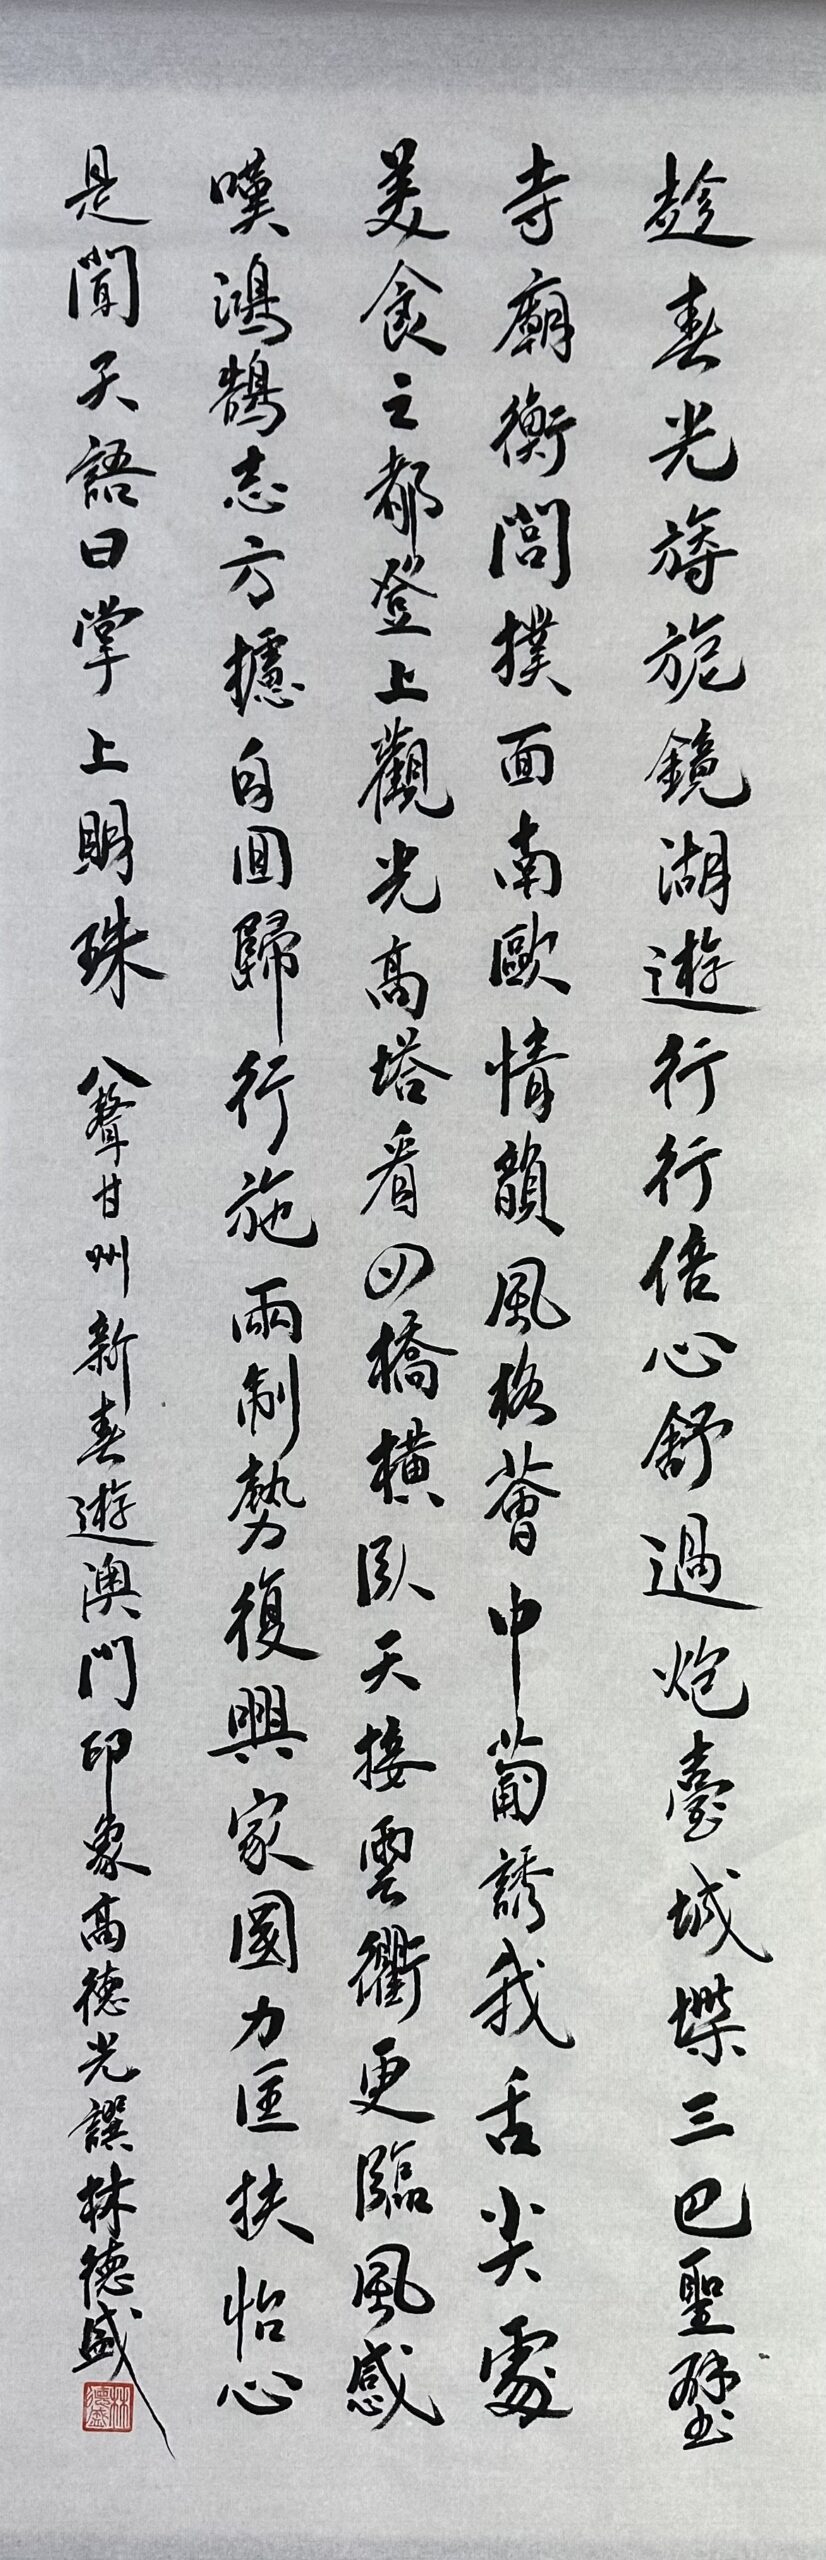 趁春光旖旎鏡湖遊行行倍心舒過炮臺城堞三巴聖壁
寺廟衡閭撲面南歐情韻風格薈中葡誘我舌尖處
美食之都登上觀光高塔看四橋橫臥天接雲衢更臨風感
嘆鴻鵠志方攄自回歸行施兩制勢復興家國力匡扶怡心
是聞天語曰掌上明珠 八聲甘州新春遊澳門印象高德光譔林德盛
林德盛